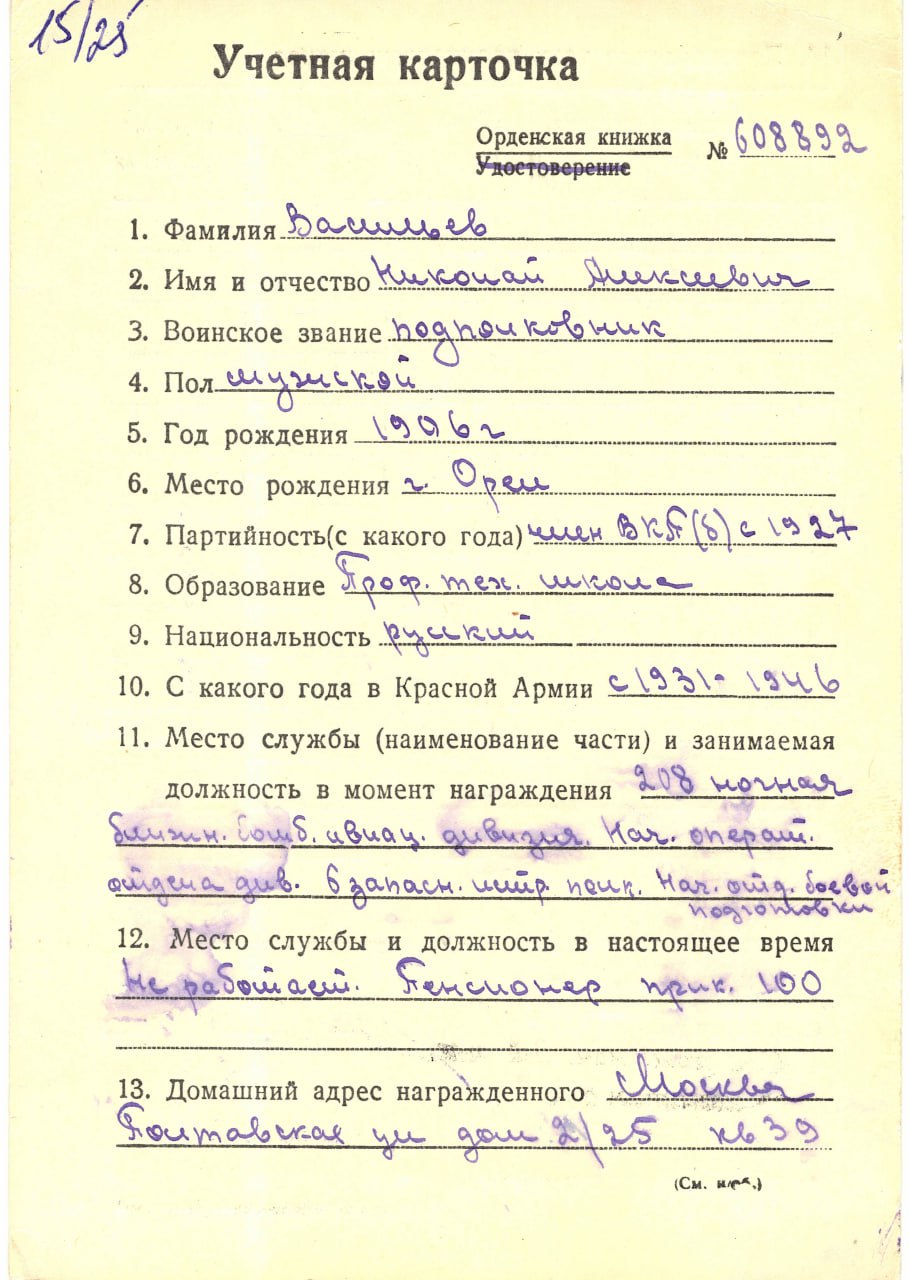 15/25
Учетная карточка
Орденская книжка № 608892
Удостоверение
1. Фамилия Васильев
2. Имя и отчество Николай Алексеевич
3. Воинское звание подполковник
4. Пол мужской
5. Год рождения 1906 г
6. Место рождения г. Орел
7. Партийность(с какого года) член ВКП(б) с 1927
8. Образование Проф. тех. школа
9. Национальность русский
10. С какого года в Красной Армии с 1931 - 1946
11. Место службы (наименование части) и занимаемая
должность в момент награждения 208 ночная
ближн. бомб. авиац. дивизия. Нач. операт.
отдела див. 6 запасн. истр. полк. Нач. отд. боевой
подготовки
12. Место службы и должность в настоящее время
Не работает. Пенсионер прик. 100
13. Домашний адрес награжденного Москва
Полтавская ул дом 2/25 кв 39
(См. н/об.)